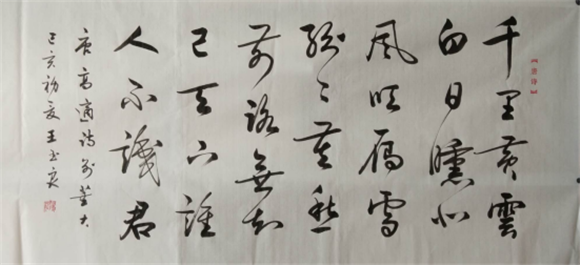 千里黄雲
白日曛北
風吹雁雪
紛〻莫愁
前路無知
己天下誰
人不識君
唐高適詩別董大
己亥初夏王玉